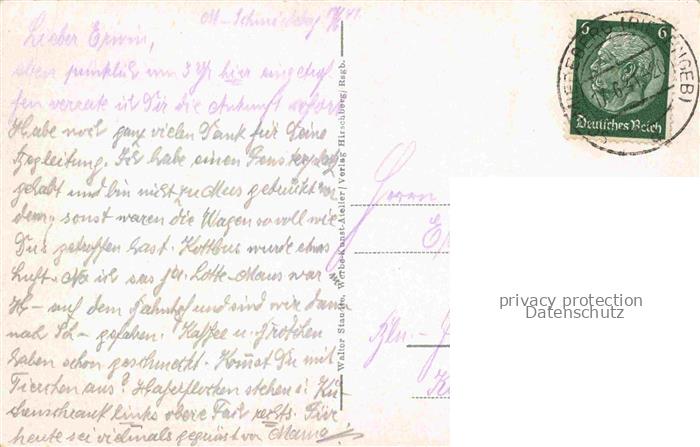 O/-Schmiedeberg 17/6 41.
Lieber Erwin,
eben pünktlich um 3 Uhr hier eingetrof-
fen verrate ich Dir die Ankunft sofort.
Habe noch ganz vielen Dank für Deine
Begleitung. Ich habe einen Fensterplatz
gehabt und bin nicht zu Mus gedrückt wor
den, sonst waren die Wagen so voll wie
Du's getroffen hast. Kottbus wurde etwas
Luft. Na ich sas ja. Lotte-Maus war
H- auf dem Bahnhof und sind wir dann
nach Sch- gefahren. Kaffee u. Brötchen
haben schon geschmeckt. Kommst Du mit
Tierchen aus? Haferflocken stehen i. Kü-
chenschrank links obere Fach rechts. Für
heute sei vielmals gegrüsst von Mama
Walter Staudte, Werbe-Kunst-Atelier/Verlag Hirschberg/Rsgb.
6 6
Deutsches Reich
SCHMIEDEBERG (RIESENGEB)
Herrn
Bln.-
privacy protection
Datenschutz